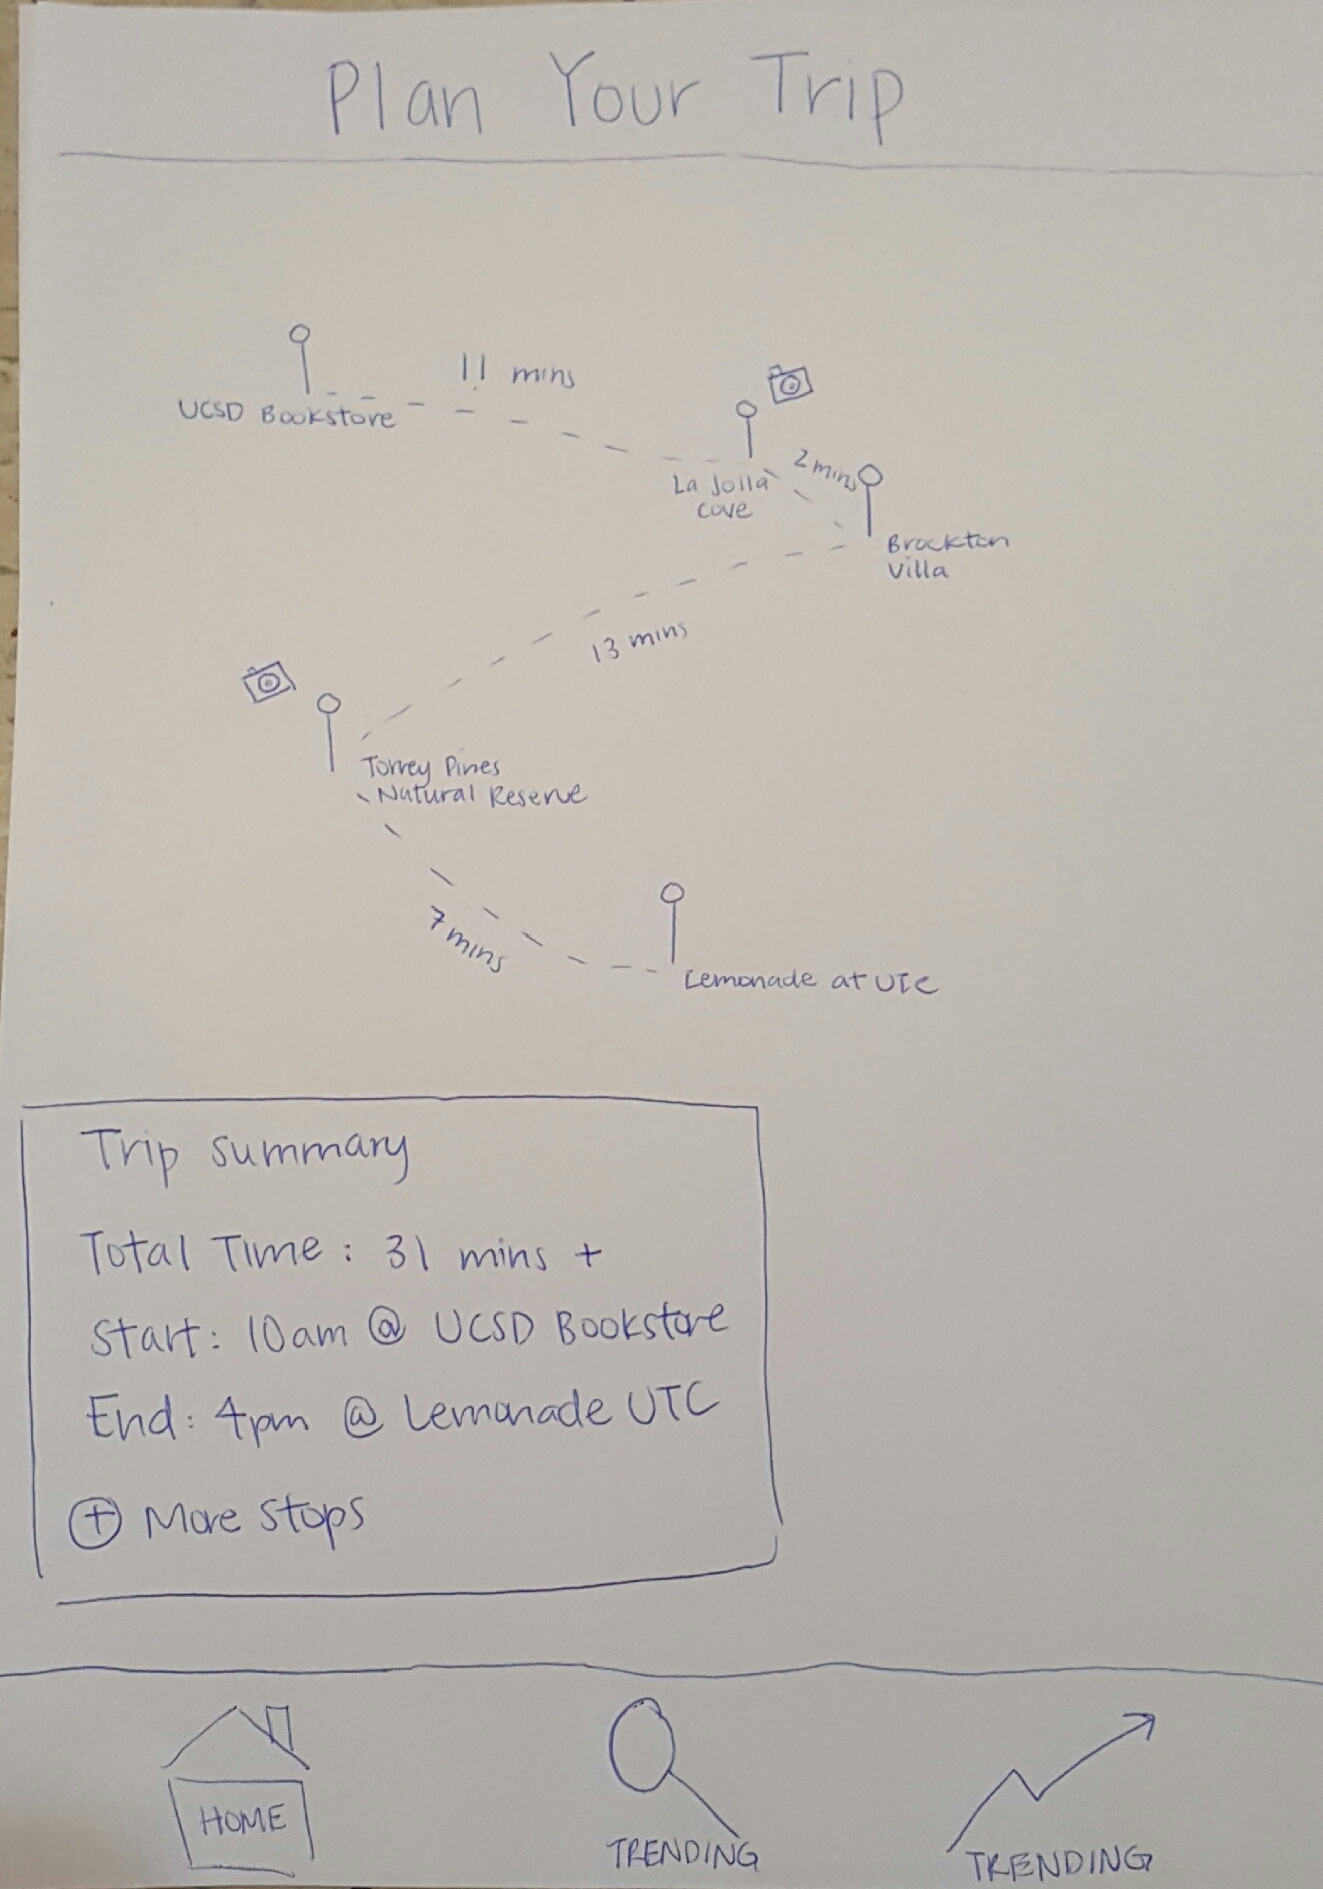 Plan Your Trip
11 mins
UCSD Bookstore
2 mins
La Jolla
Cove
Brockton
Villa
13 mins
Torrey Pines
Natural Reserve
7 mins
Lemonade at UTC
Trip summary
Total Time: 31 mins +
Start: 10am @ UCSD Bookstore
End: 4pm @ Lemonade UTC
+ More stops
HOME
TRENDING
TRENDING